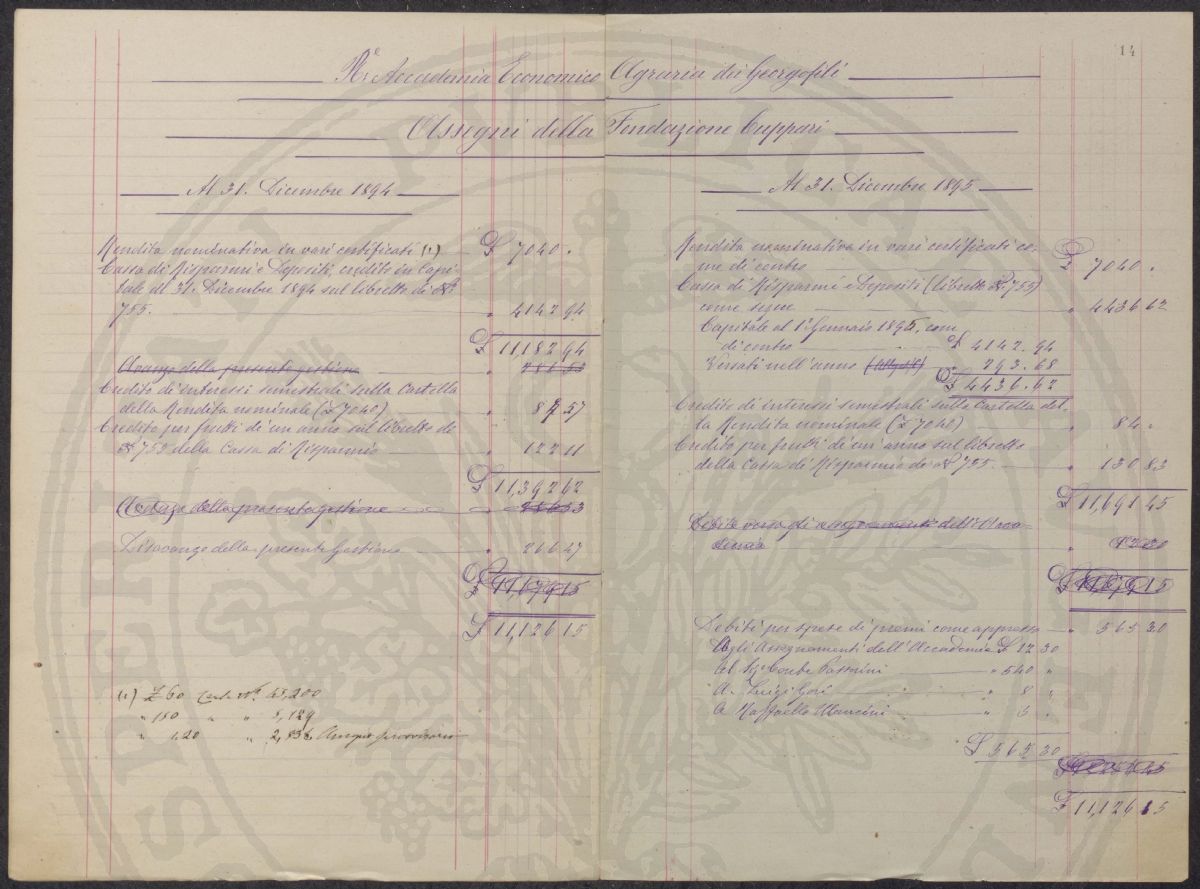 14
Rᵉ Accademia Economico Agraria dei Georgofili
Assegni della Fondazione Cuppari
Al 31. Dicembre 1894
Rendita nominativa in vari certificati (1) £ 7040.
Cassa di Risparmi e Depositi, credito in Capi-
tale al 31. Dicembre 1894 sul libretto di Nº
755. " 4142 94
£ 11,182 94
Avanzo della presente gestione
Credito di interessi semestrali sulla Cartella
della Rendita nominale (£ 7040) " 87 57
Credito per frutti di un anno sul libretto di
Nº 755 della Cassa di Risparmio " 122 11
£ 11,392 62
della presente gestione
Disavanzo della presente Gestione " 266 47
£ 11,679 15
£ 11,126 15
(1) £ 60 Cert. Nº 45,200
" 180 " " 5,129
" 120 " 2,836 provvisorio
Al 31. Dicembre 1895
Rendita nominativa in vari certificati co-
me di contro £ 7040.
Cassa di Risparmi e Depositi (libretto Nº 755)
come segue " 4436 62
Capitale al 1º Gennaio 1895. com
di contro £ 4142. 94
Versati nell'anno " 293. 68
£ 4436. 62
Credito di interessi semestrali sulla Cartella del-
la Rendita nominale (£ 7040) " 84 "
Credito per frutti di un anno sul libretto
della Cassa di Risparmio di Nº 755. " 130 83
£ 11,691 45
Debito verso gli assegnamenti dell'Acca-
demia " 12 30
£ 11,679 15
Debiti per spese di premi come appresso " 565 30
Agli Assegnamenti dell'Accademia £ 12 30
Al Sigr Conte Passerini " 540 "
A Luigi Gori " 8 "
A Raffaello Mancini " 5 "
£ 565 30
£ 11,126 15